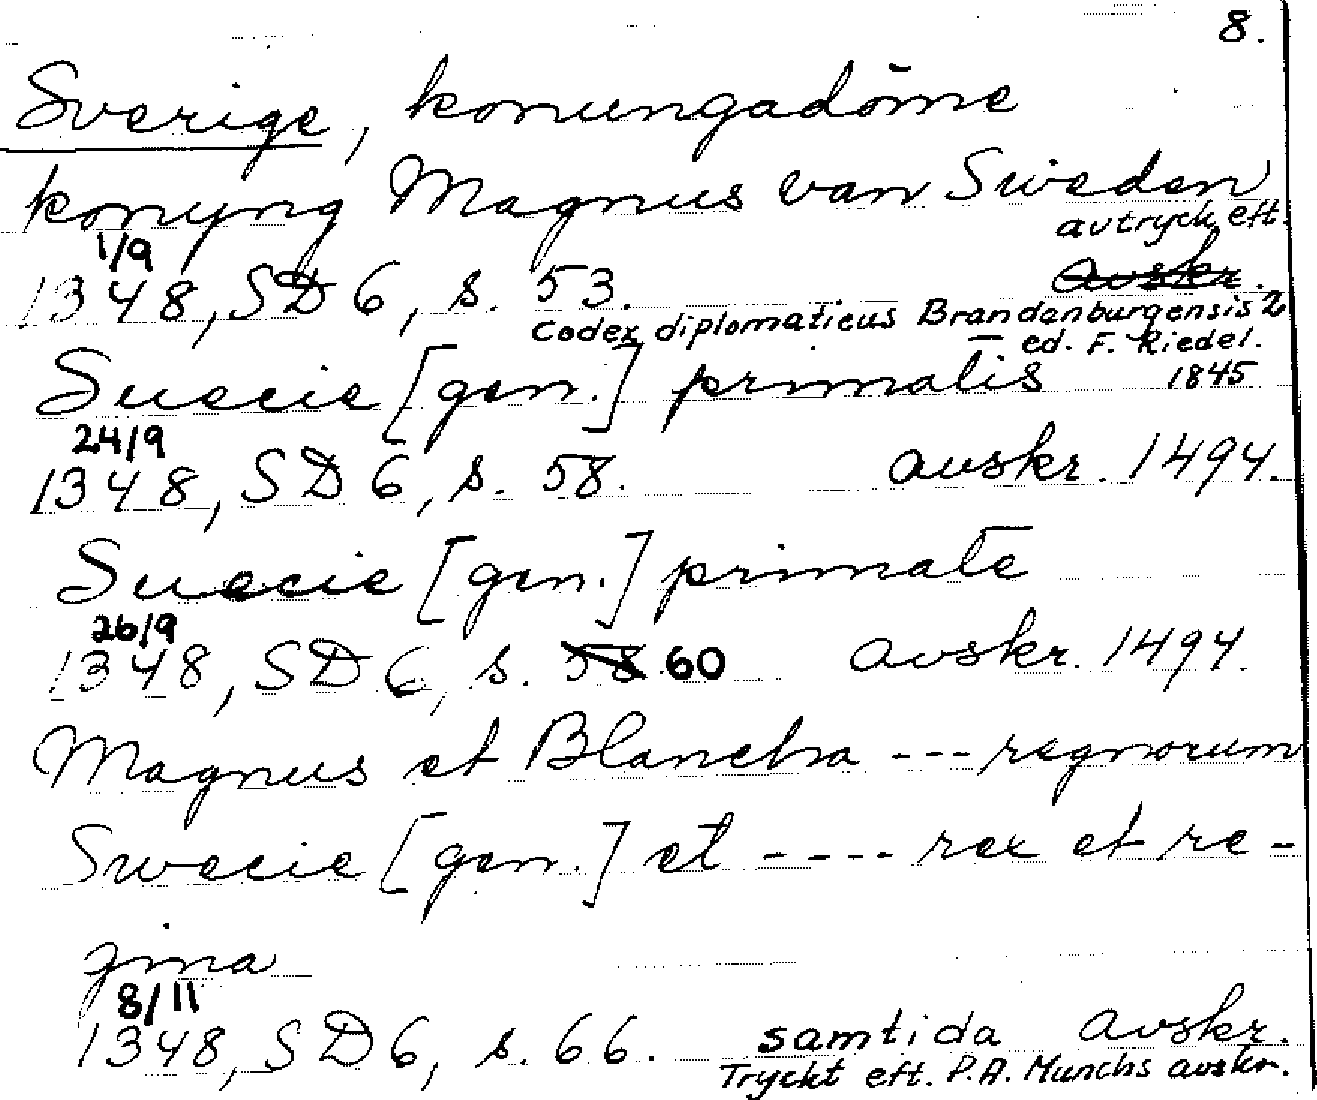 8.
Sverige, konungadöme
konyng Magnus van Sweden
avtryck eft.
1/9
1348, SD 6, s. 53. Avskr.
Codex diplomaticus Brandenburgensis 2
ed. F. Riedel.
Suecie [gen.] primatis 1845
24/9
1348, SD 6, s. 58. avskr. 1494.
Suecie [gen.] primate
26/9
1348, SD 6, s. 58 60 avskr. 1494.
Magnus et Blancha --- regnorum
Swecie [gen.] et ---- rex et re-
gina
8/11
1348, SD 6, s. 66. samtida avskr.
Tryckt eft. P.A. Munchs avskr.